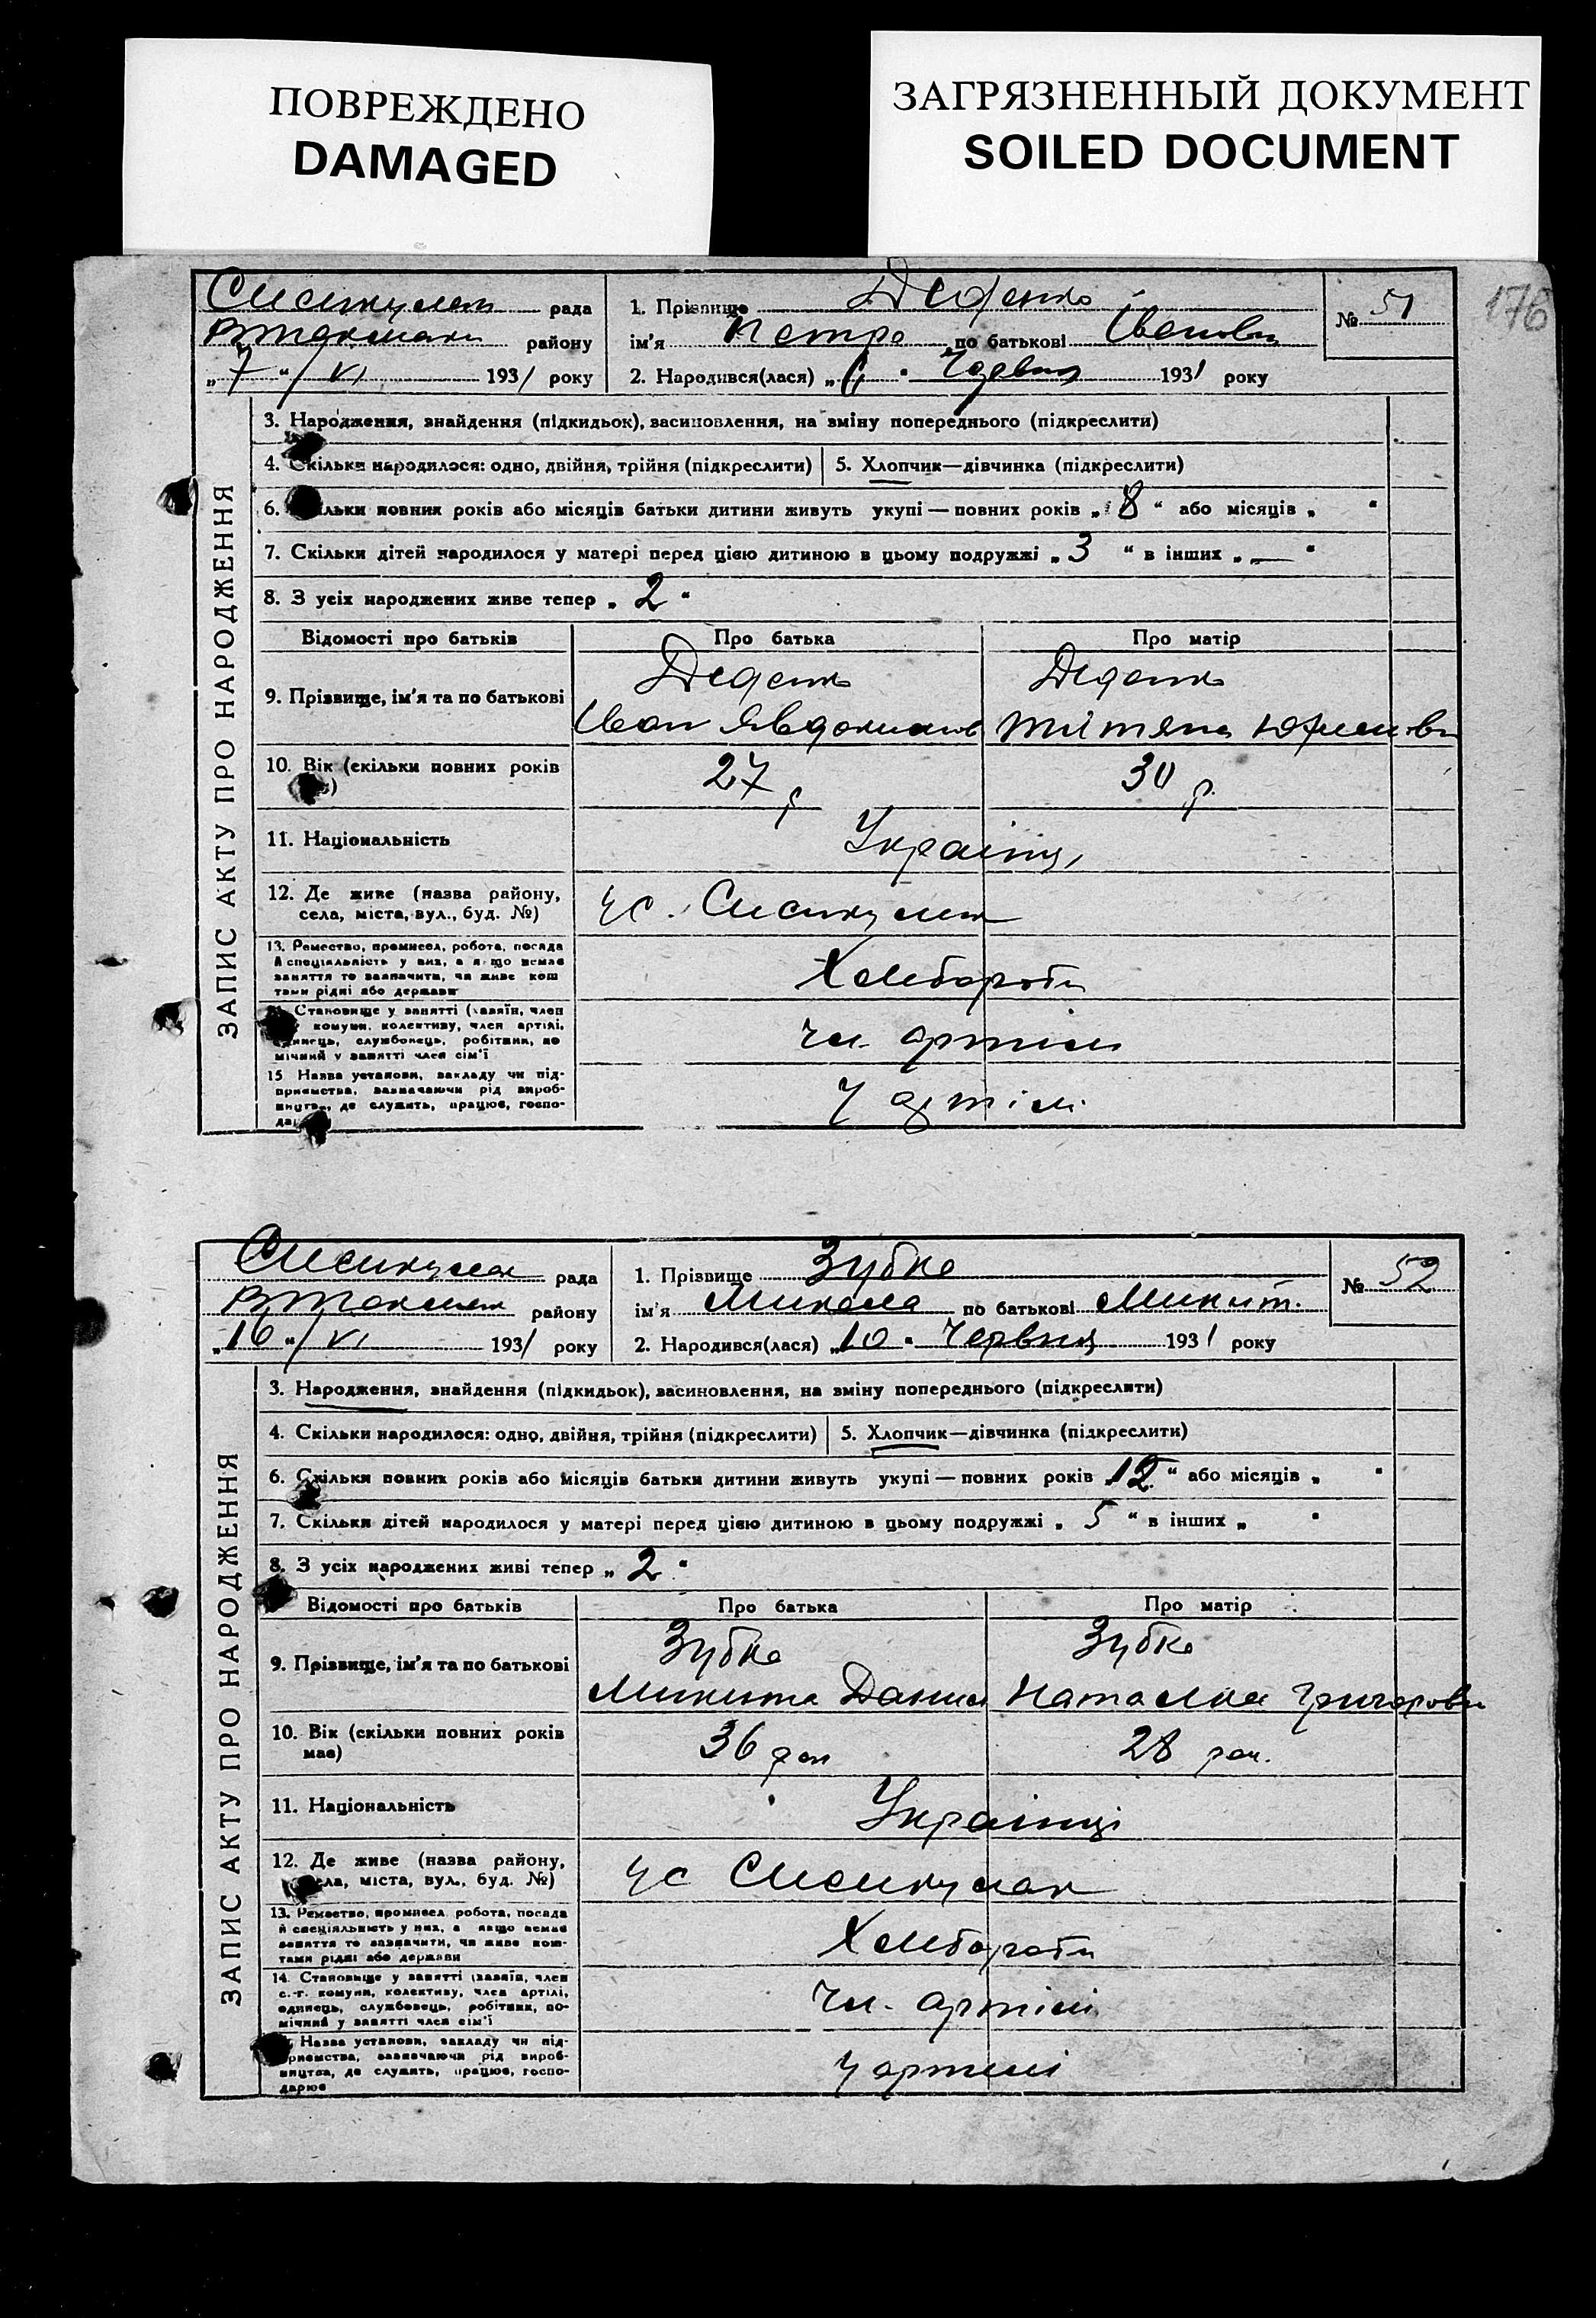 ПОВРЕЖДЕНО
DAMAGED
ЗАГРЯЗНЕННЫЙ ДОКУМЕНТ
SOILED DOCUMENT
176
рада
району
„7“/VI 1931 року
1. Прізвище Деденко
ім'я Петро по батькові Іванови
2. Народився(лася) „6“ Червня 1931 року
№ 51
ЗАПИС АКТУ ПРО НАРОДЖЕННЯ
3. Народження, знайдення (підкидьок), засиновлення, на зміну попереднього (підкреслити)
4. Скільки народилося: одно, двійня, трійня (підкреслити) 5. Хлопчик—дівчинка (підкреслити)
6. льки повних років або місяців батьки дитини живуть укупі — повних років „8“ або місяців „ “
7. Скільки дітей народилося у матері перед цією дитиною в цьому подружжі „3“ в інших „—“
8. З усіх народжених живе тепер „2“
Відомості про батьків Про батька Про матір
9. Прізвище, ім'я та по батькові
Деденко Деденко
Іван
10. Вік (скільки повних років
27 р 30 р.
11. Національність Українці
12. Де живе (назва району,
села, міста, вул., буд. №)
у с.
13. Ремество, промисел, робота, посада
й спеціяльність у них, а якщо немає
заняття то зазначити, чи живе кош
тами рідні або держави
Хлебороби
Становище у занятті (хазяїн, член
комуни, колективу, член артілі,
одинець, службовець, робітник, по
мічний у занятті член сім'ї
Чл. артілі
15 Назва установи, закладу чи під-
приємства, зазначаючи рід вироб-
ництва, де служить, працює, госпо-
У артілі
рада
району
„10“/VI 1931 року
1. Прізвище Зубко
ім'я Микола по батькові Микит.
2. Народився(лася) „10“ Червня 1931 року
№ 52
ЗАПИС АКТУ ПРО НАРОДЖЕННЯ
3. Народження, знайдення (підкидьок), засиновлення, на зміну попереднього (підкреслити)
4. Скільки народилося: одно, двійня, трійня (підкреслити) 5. Хлопчик—дівчинка (підкреслити)
6. Скільки повних років або місяців батьки дитини живуть укупі — повних років „12“ або місяців „ “
7. Скільки дітей народилося у матері перед цією дитиною в цьому подружжі „5“ в інших „ “
8. З усіх народжених живі тепер „2“
Відомості про батьків Про батька Про матір
9. Прізвище, ім'я та по батькові
Зубко Зубко
Микита Данил Наталка Григорови
10. Вік (скільки повних років
має)
36 рок 28 рок.
11. Національність Українці
12. Де живе (назва району,
села, міста, вул., буд. №)
у с
13. Ремество, промисел, робота, посада
й спеціяльність у них, а якщо немає
заняття то зазначити, чи живе кош-
тами рідні або держави
Хлебороби
14. Становище у занятті (хазяїн, член
с.-г. комуни, колективу, член артілі,
одинець, службовець, робітник, по-
мічний у занятті член сім'ї
Чл. артілі
Назва установи, закладу чи під-
приємства, зазначаючи рід вироб-
ництва, де служить, працює, госпо-
дарює
У артілі